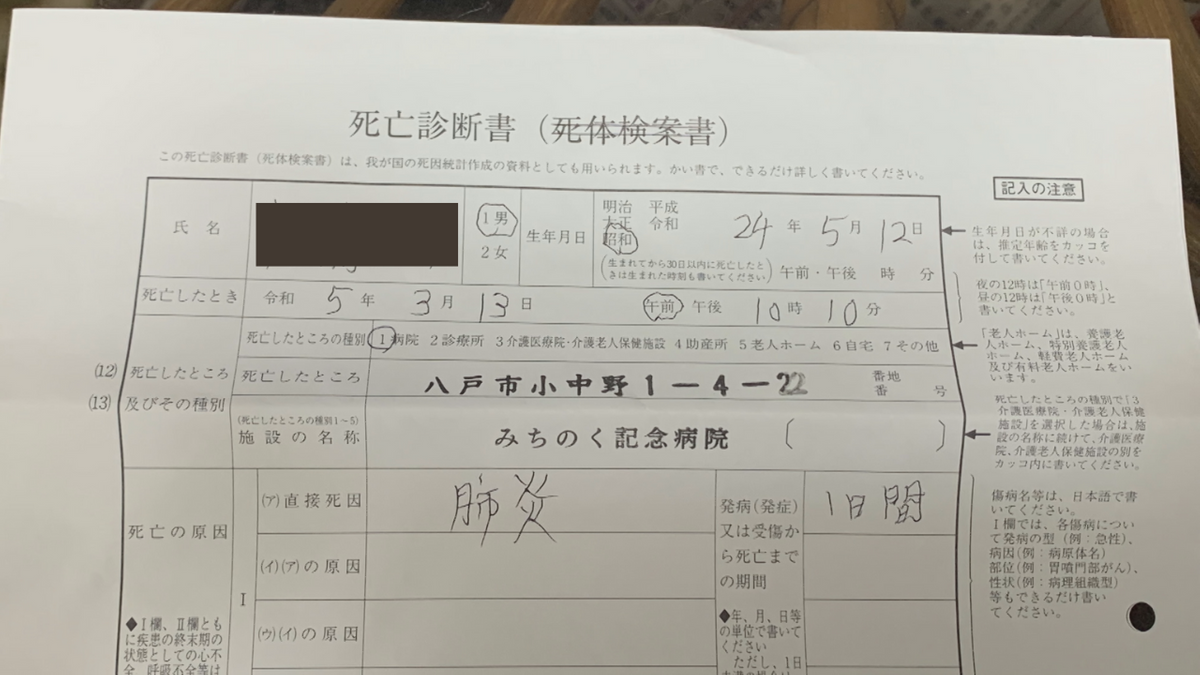 死亡診断書（死体検案書）
この死亡診断書（死体検案書）は、我が国の死因統計作成の資料としても用いられます。かい書で、できるだけ詳しく書いてください。
記入の注意
氏 名
1男
2女
生年月日
明治 平成
大正 令和
昭和
24年 5月 12日
(生まれてから30日以内に死亡したときは生まれた時刻も書いてください) 午前・午後 時 分
生年月日が不詳の場合
は、推定年齢をカッコを
付して書いてください。
死亡したとき
令和 5年 3月 13日 午前 午後 10時 10分
夜の12時は「午前0時」、
昼の12時は「午後0時」と
書いてください。
(12)
(13)
死亡したところ
及びその種別
死亡したところの種別 1病院 2診療所 3介護医療院・介護老人保健施設 4助産所 5老人ホーム 6自宅 7その他
死亡したところ
八戸市小中野1－4－22
番地
番 号
「老人ホーム」は、養護老
人ホーム、特別養護老人
ホーム、軽費老人ホーム
及び有料老人ホームをい
います。
(死亡したところの種別1～5)
施設の名称
みちのく記念病院 ( )
死亡したところの種別で「3
介護医療院・介護老人保健
施設」を選択した場合は、施
設の名称に続けて、介護医療
院、介護老人保健施設の別を
カッコ内に書いてください。
死亡の原因
◆Ⅰ欄、Ⅱ欄とも
に疾患の終末期の
状態としての心不
全、呼吸不全等は
Ⅰ
(ア)直接死因
肺炎
(イ)(ア)の原因
(ウ)(イ)の原因
発病(発症)
又は受傷か
ら死亡まで
の期間
◆年、月、日等
の単位で書いて
ください
ただし、1日
1日間
傷病名等は、日本語で書
いてください。
Ⅰ欄では、各傷病につい
て発病の型（例：急性）、
病因（例：病原体名）
部位（例：胃噴門部がん）、
性状（例：病理組織型）
等もできるだけ書い
てください。